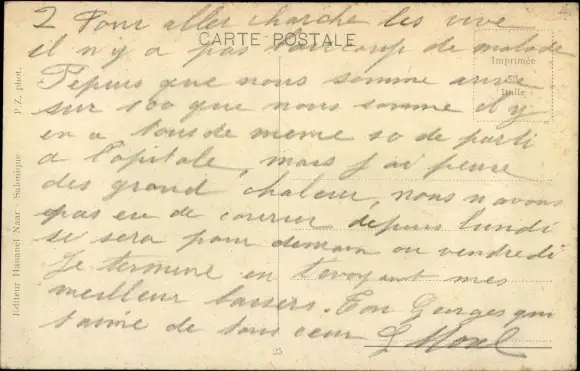 2 Pour aller charche les vive
CARTE POSTALE
il n y a pas baucoup de malade
Imprimée
en
Italie
Depuis que nous somme arive
sur 100 que nous somme il y
en a tousde meme 10 de parti
a l'opitale, mais j ai peure
des grand chaleur, nous n avous
pas eu de courrier depuis lundi
se sera pour demain ou vendredi
Je termine en t'evoyant mes
meilleur baisers. Ton Georges qui
t'aime de tous ceur G Morel
Editeur Hananel Naar - Salonique
P. Z. phot.
25